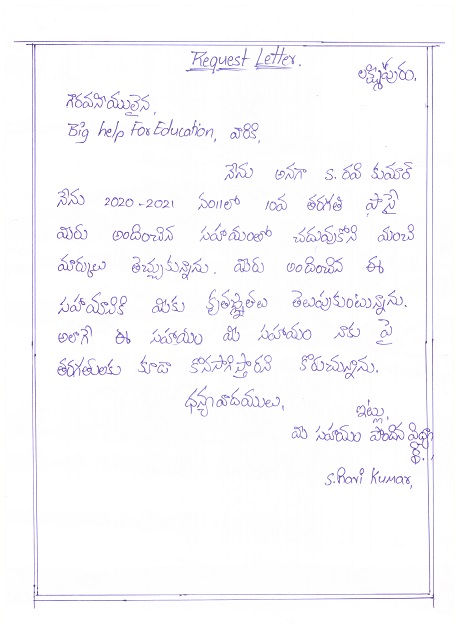 Request Letter.
లక్ష్మీపురం.
గౌరవనీయులైన,
Big help For Education, వారికి,
నేను అనగా S. రవి కుమార్
నేను 2020-2021 సం॥లో 10వ తరగతి పాసై
మీరు అందించిన సహాయంతో చదువుకొని మంచి
మార్కులు తెచ్చుకున్నాను. మీరు అందించిన ఈ
సహాయానికి మీకు కృతజ్ఞతలు తెలుపుకుంటున్నాను.
అలాగే ఈ సహాయం మీ సహాయం నాకు పై
తరగతులకు కూడా కొనసాగిస్తారని కోరుచున్నాను.
ధన్యవాదములు,
ఇట్లు,
మీ సహాయం పొందిన విద్యా
ర్థి.
S. Ravi Kumar,